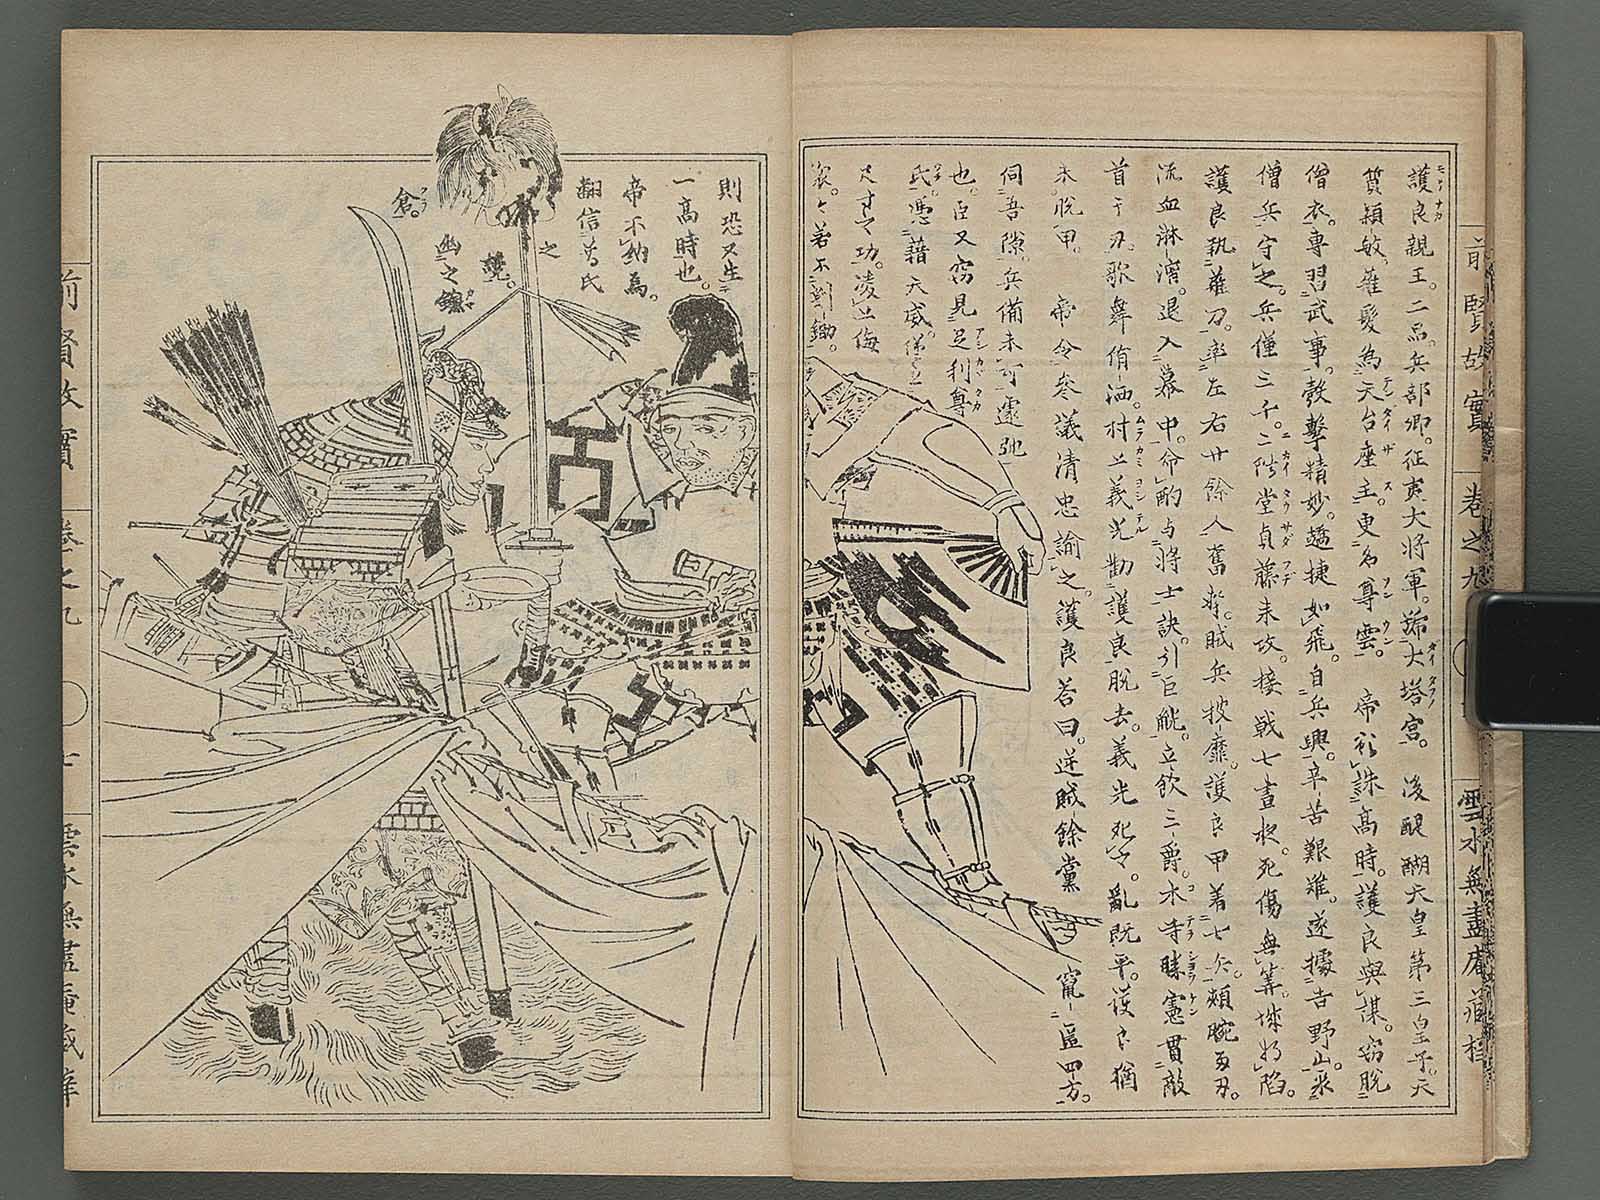 護良親王。二品。兵部卿。征夷大将軍。稱大塔宮。後醍醐天皇第三皇子。天
質穎敏。薙髪為天台座主。更名尊雲。帝欲誅高時。護良與謀。窃脱
僧衣。専習武事。彀撃精妙。蹻捷如飛。自兵興。辛苦艱難。遂據吉野山。采
僧兵守之。兵僅三千。二階堂貞藤来攻。接戦七晝夜。死傷無筭。城将陥。
護良執薙刀。率左右廿餘人奮荐。賊兵披靡。護良甲着七矢。頬腕受刃。
流血淋漓。退入幕中。命酌与将士訣。引巨觥。立飲三爵。木寺勝憲貫敵
首于刃。歌舞侑洒。村上義光勸護良脱去。義光死之。亂既平。護良猶
未脱甲。帝令参議清忠諭之。護良答曰。逆賊餘黨竄匿四方。
伺吾隙。兵備未可遽弛
也。臣又窃見足利尊
氏。憑藉天威。僅立
尺寸之功。凌上侮
衆。今若不剗鋤。
則恐又生
一高時也。
帝不納焉。
翻信尊氏
之
讒。
幽之鎌
倉。
前賢故實 卷之九 雲水無盡庵藏梓
前賢故實 卷之九 十 雲水無盡庵藏梓